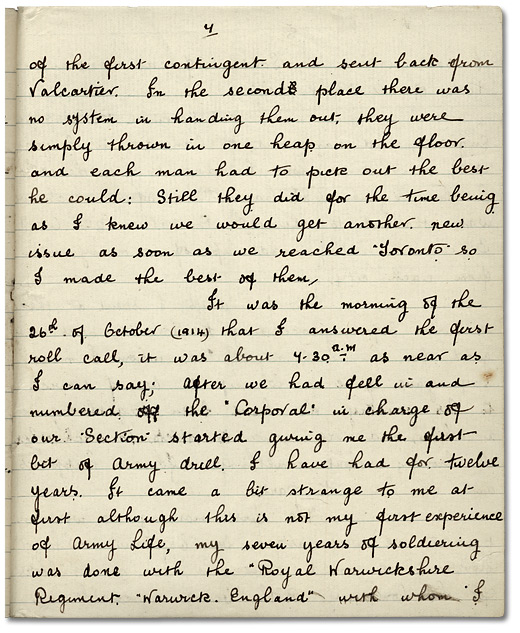 4
of the first contingent. and sent back from
Valcartier. In the second place there was
no system in handing them out, they were
simply thrown in one heap on the floor.
and each man had to pick out the best
he could: Still they did for the time being
as I knew we would get another. new
issue as soon as we reached "Toronto" so
I made the best of them,
It was the morning of the
26th. of October (1914) that I answered the first
roll call, it was about 4-30 a.m as near as
I can say; after we had fell in and
numbered off the "Corporal" in charge of
our "Section" started giving me the first
bit of Army drill. I have had for twelve
years. It came a bit strange to me at
first although this is not my first experience
of Army Life, my seven years of soldiering
was done with the "Royal Warwickshire
Regiment. "Warwick. England" with whom I